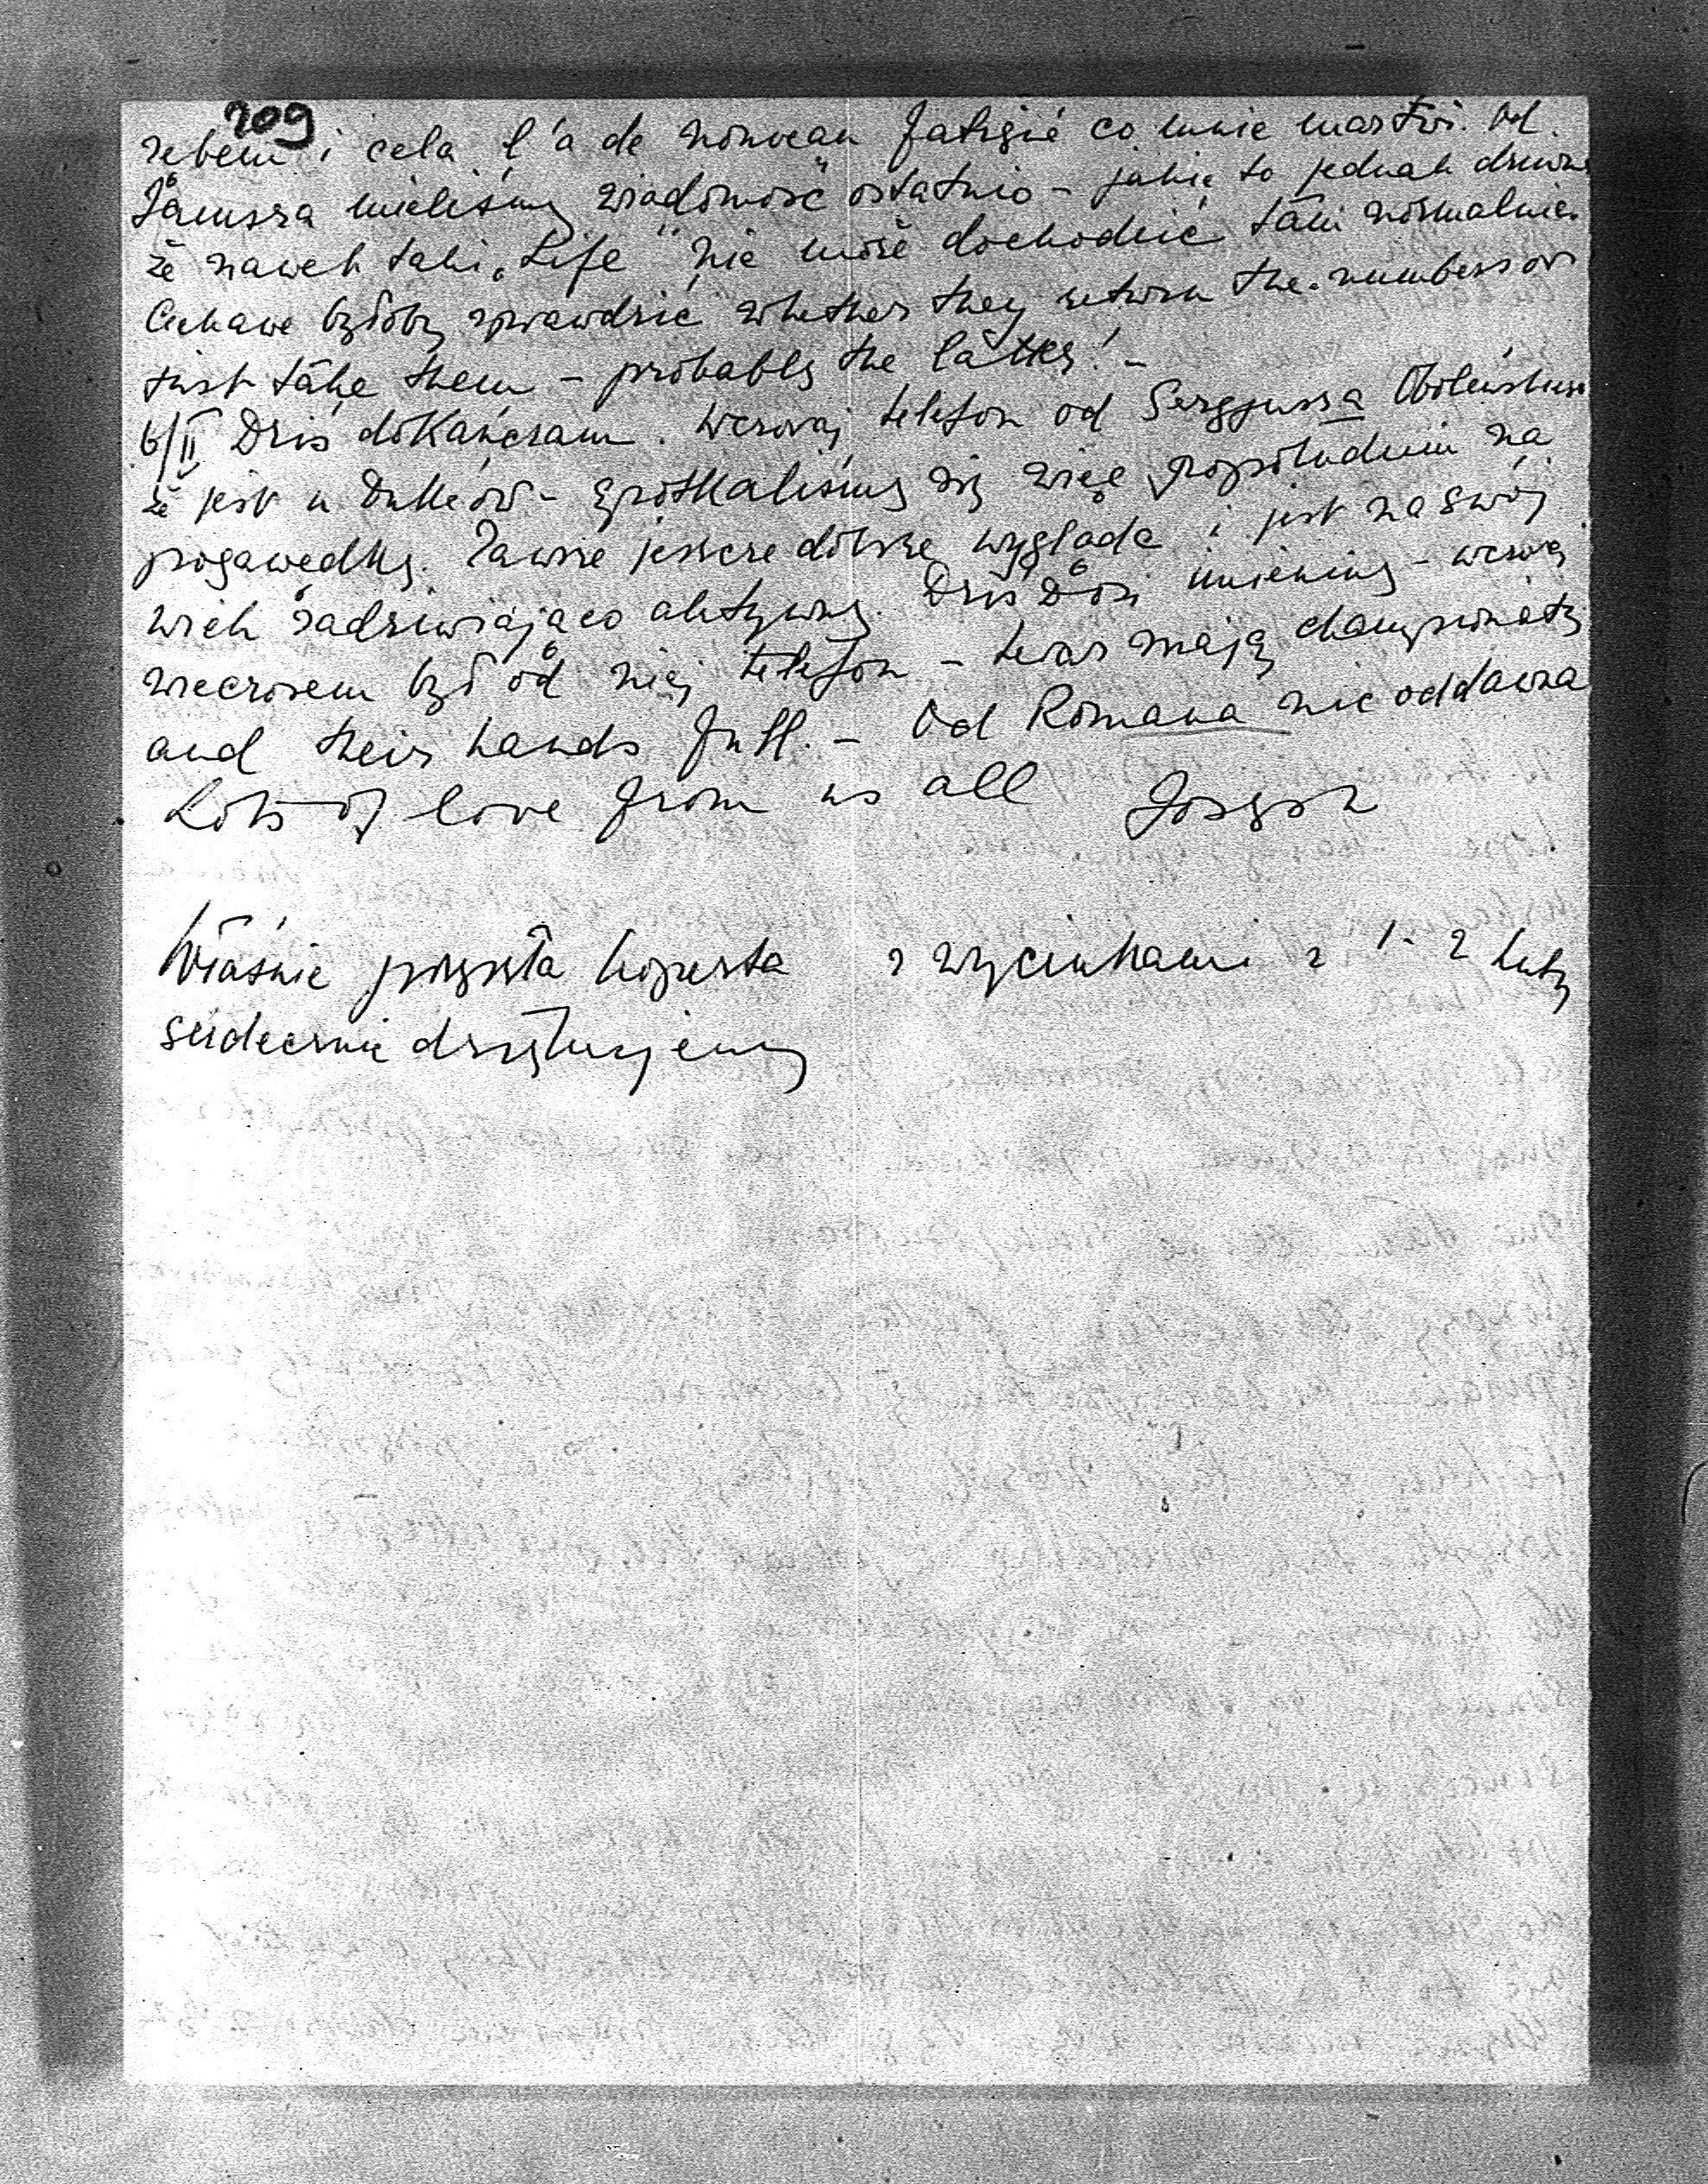 209
zębem i cela l'a de nouveau fatigué co mnie martwi. Od
Janusza mieliśmy wiadomość ostatnio – jakie to jednak dziwne
że nawet taki „Life" nie może dochodzić tam normalnie.
Ciekawe byłoby sprawdzić whether they return the numbers or
just take them – probably the latter! –
6/II Dziś dokańczam. Wczoraj telefon od Sergjusza
że jest u – spotkaliśmy się więc popołudniu na
pogawędkę. Zawsze jeszcze dobrze wygląda i jest na swój
wiek zadziwiająco aktywny. Dziś Dosi imieniny – wczoraj
wieczorem był od niej telefon – teraz mają championaty
and their hands full. – Od Romana nic oddawna
Lots of love from us all Joseph
Właśnie przyszła koperta z wycinkami z 1. 2 luty
serdecznie dziękujemy